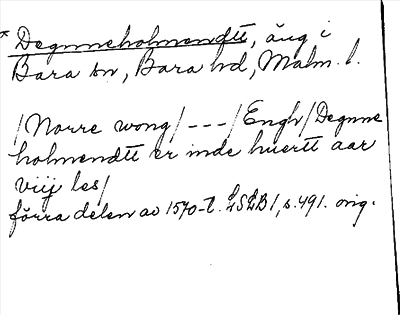 * Degnneholmendtt, äng i
Bara sn, Bara hd, Malm. l.
/Norre wong/ --- /Engh/ Degnne
holmendtt er inde huertt aar
viij les/
förra delen av 1570-t. LSLB 1, s. 491. orig.